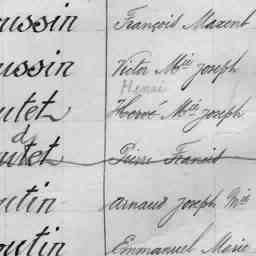 ussin François Maxent
ussin Victor Mie Joseph
Henri
utet Hervé Mie Joseph
d
utet Pierre Francis
utin Arnaud Joseph Mie
outin Emmanuel Marie